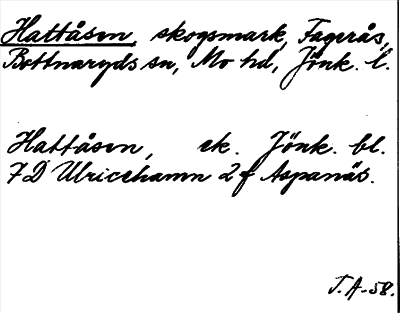 Hattåsen, skogsmark, Fagerås,
Bottnaryds sn, Mo hd, Jönk. l.
Hattåsen, ek. Jönk. bl.
7D Ulricehamn 2 f Aspanäs.
T.A-58.